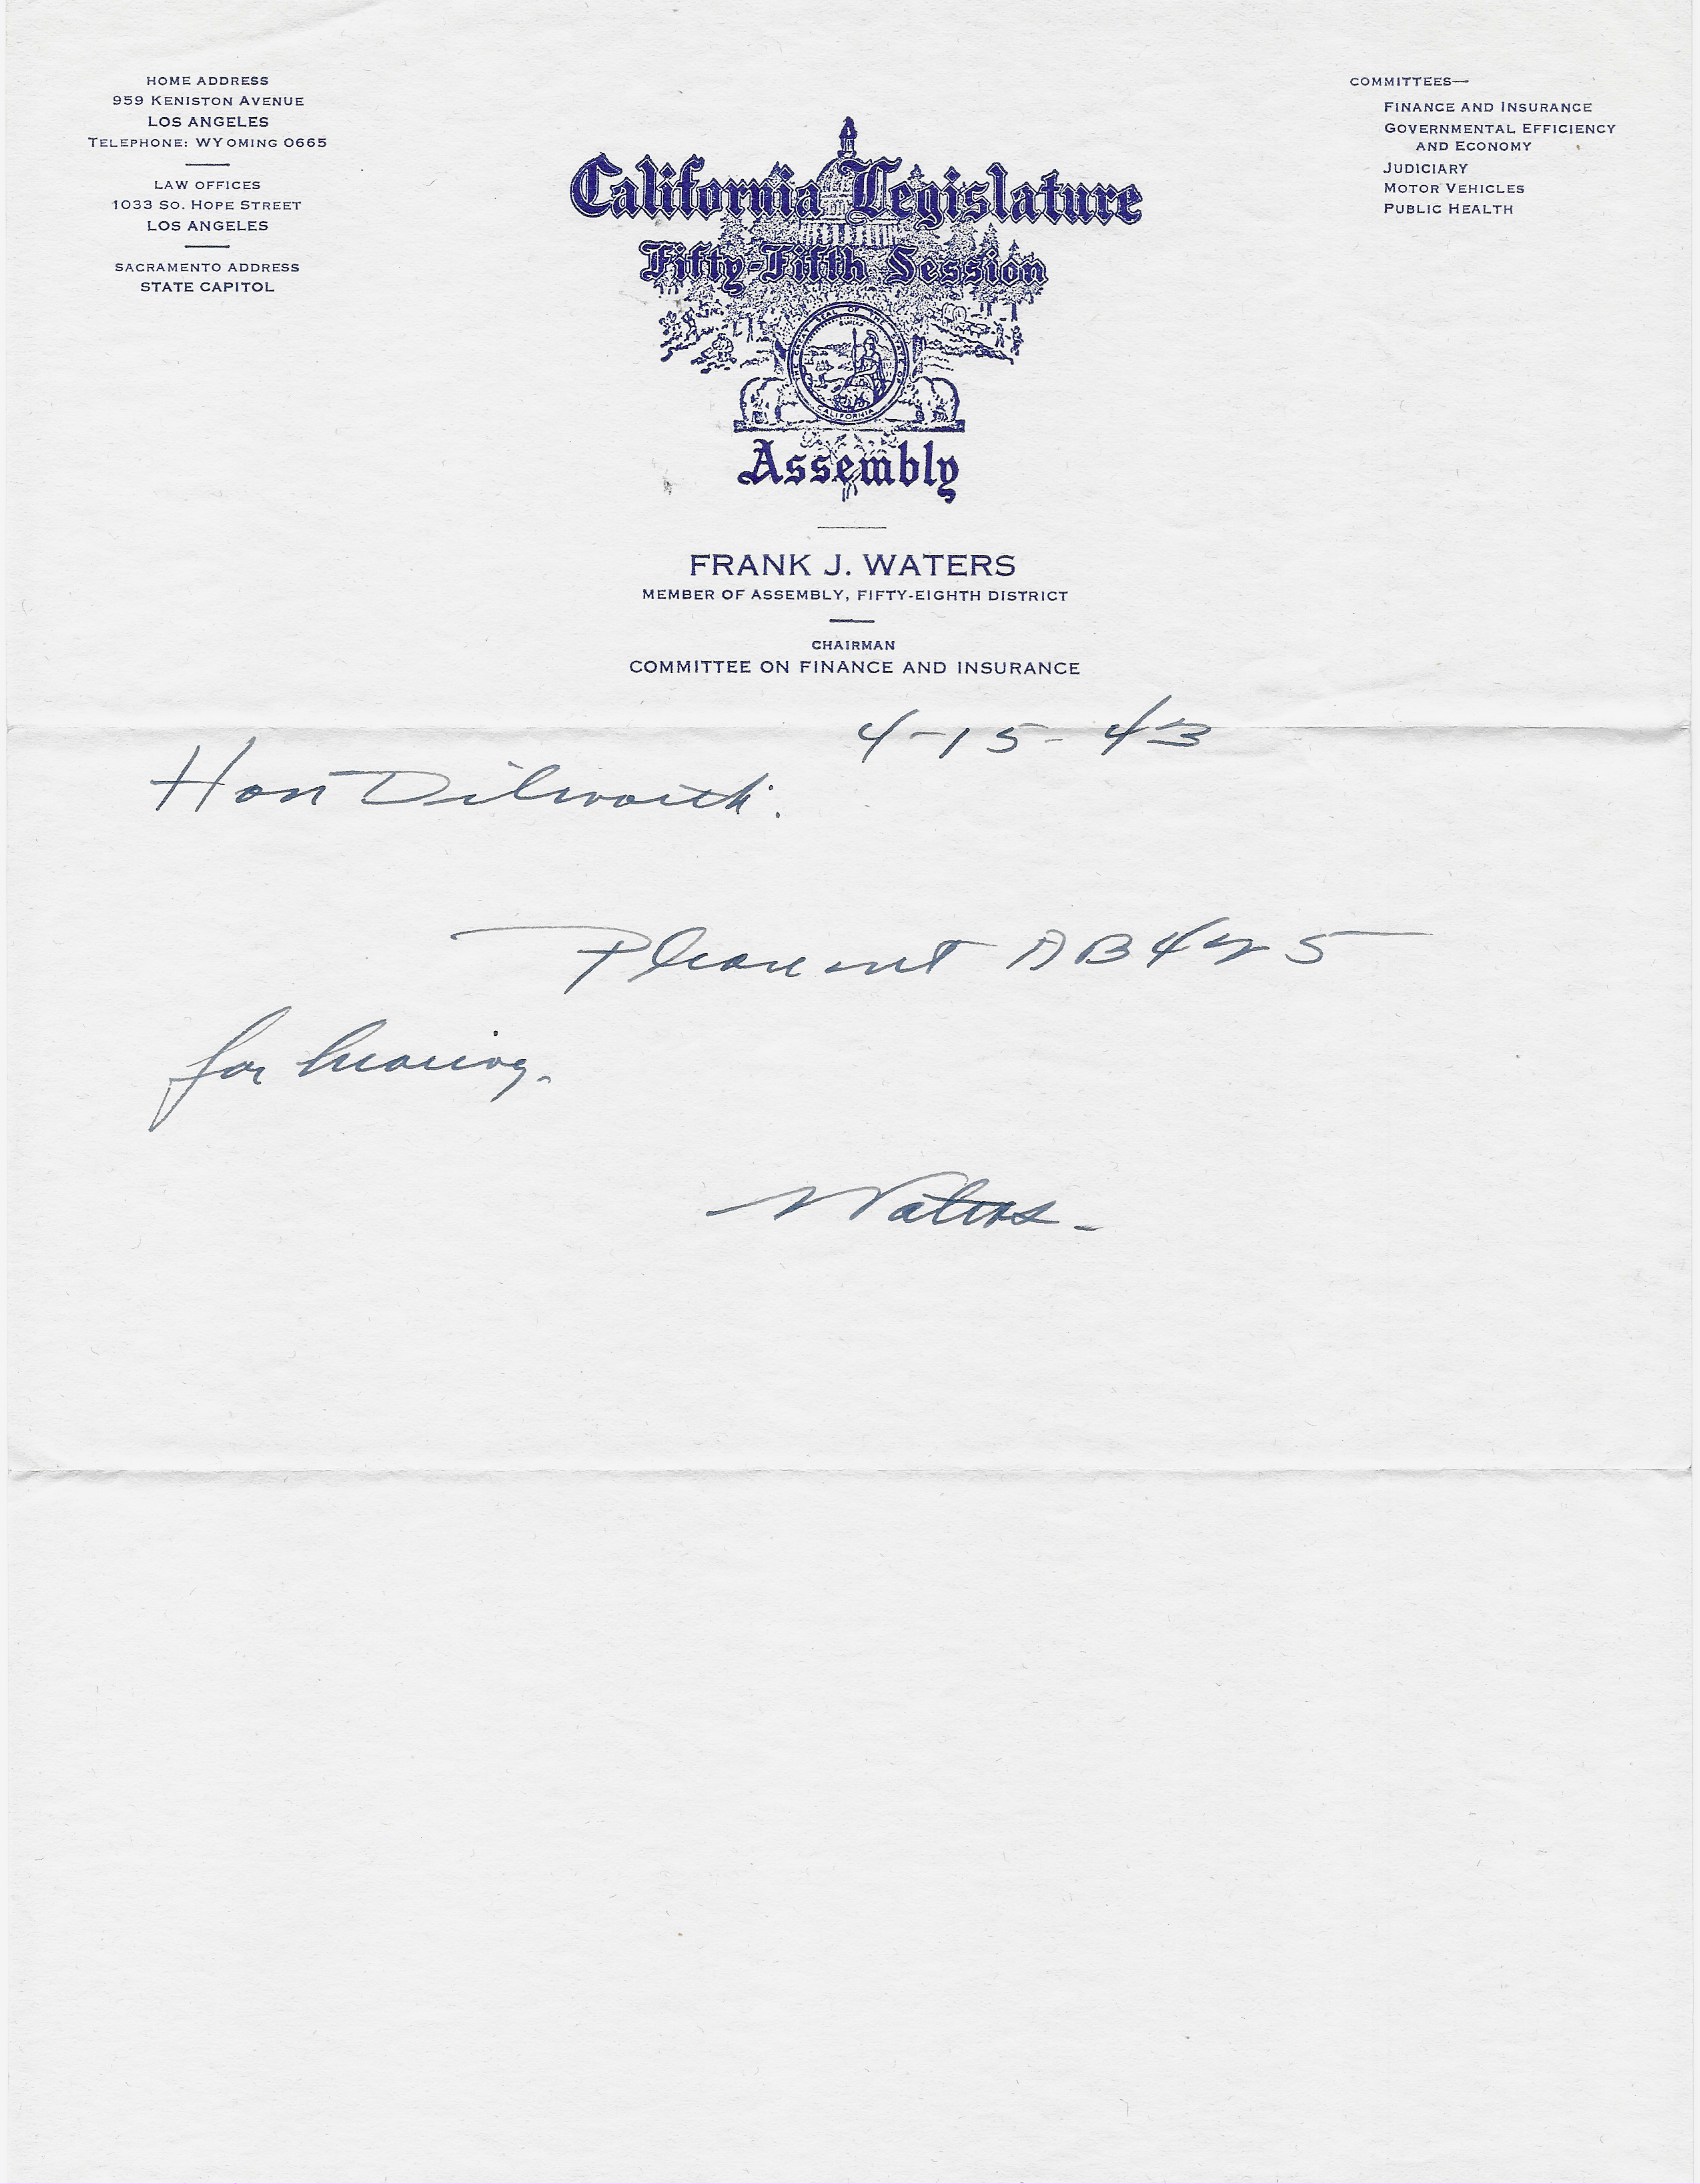 HOME ADDRESS
959 KENISTON AVENUE
LOS ANGELES
TELEPHONE: WYOMING 0665
LAW OFFICES
1033 SO. HOPE STREET
LOS ANGELES
SACRAMENTO ADDRESS
STATE CAPITOL
California Legislature
Fifty-Fifth Session
CALIFORNIA
Assembly
FRANK J. WATERS
MEMBER OF ASSEMBLY, FIFTY-EIGHTH DISTRICT
CHAIRMAN
COMMITTEE ON FINANCE AND INSURANCE
COMMITTEES—
FINANCE AND INSURANCE
GOVERNMENTAL EFFICIENCY
AND ECONOMY
JUDICIARY
MOTOR VEHICLES
PUBLIC HEALTH
4-15-43
Hon Dilworth:
Please set AB 425
for hearing.
Waters-